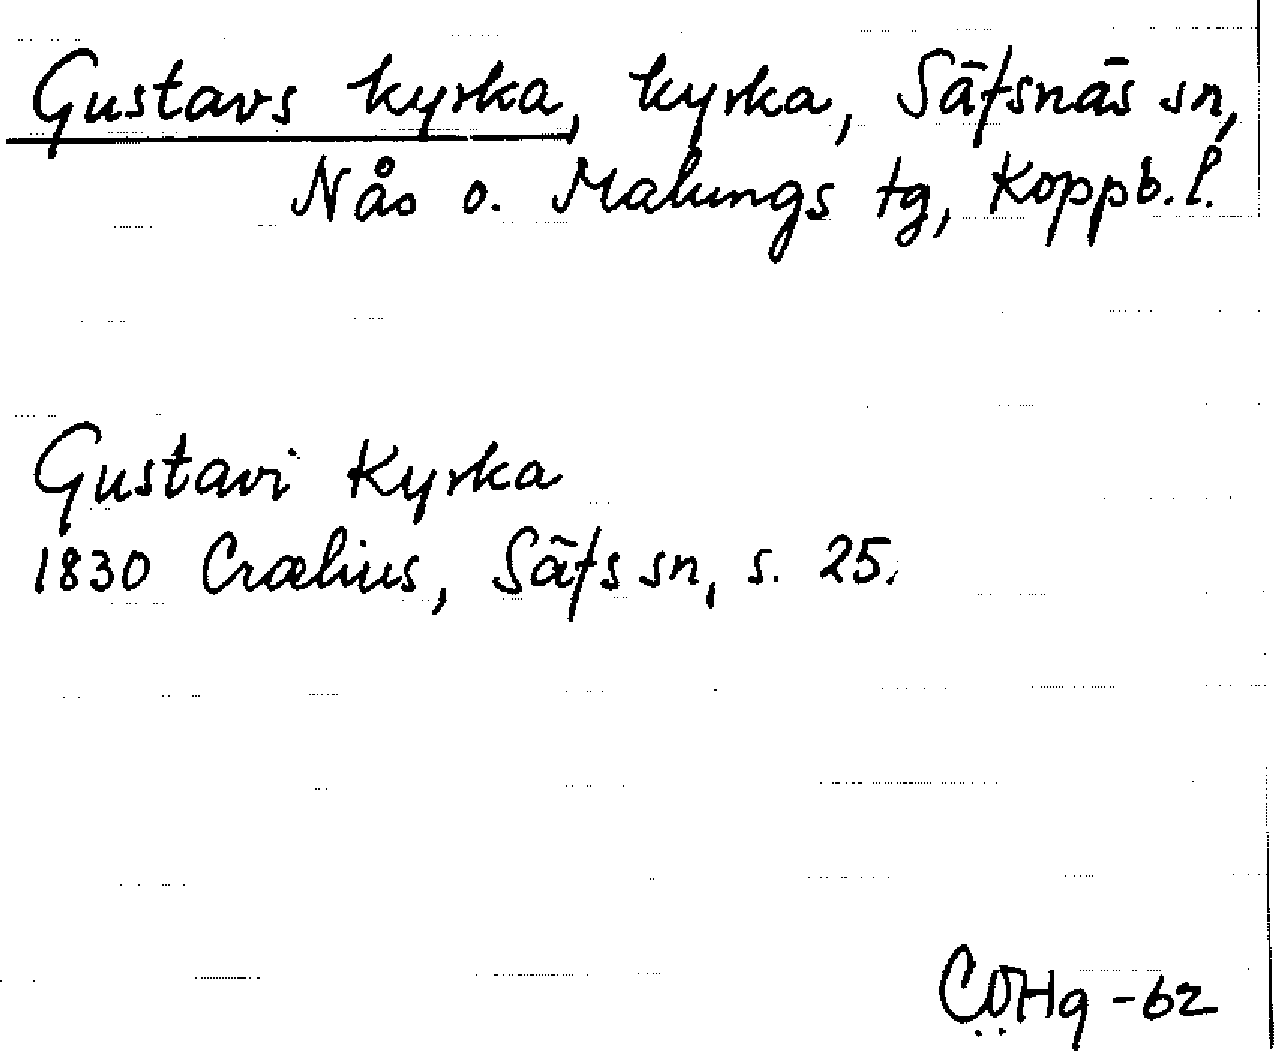 Gustavs kyrka, kyrka, Säfsnäs sn,
Nås o. Malungs tg, Koppb. l.
Gustavi Kyrka
1830 Crælius, Säfs sn, s. 25.
-62